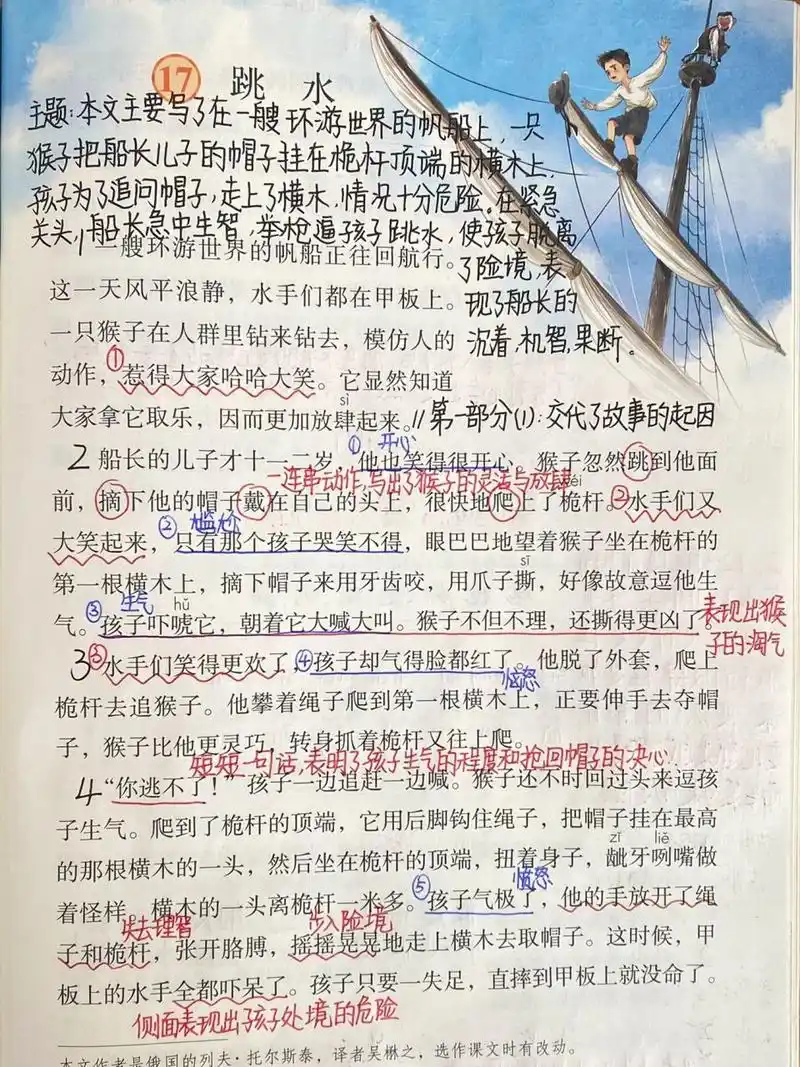 17 跳 水
主题:本文主要写了在一艘环游世界的帆船上,一只
猴子把船长儿子的帽子挂在桅杆顶端的横木上,
孩子为了追问帽子,走上了横木,情况十分危险。在紧急
关头,船长急中生智,举枪逼孩子跳水,使孩子脱离
了险境,表
现了船长的
沉着,机智,果断。
1 一艘环游世界的帆船正往回航行。
这一天风平浪静,水手们都在甲板上。
一只猴子在人群里钻来钻去,模仿人的
①
动作,惹得大家哈哈大笑。它显然知道
sì
大家拿它取乐,因而更加放肆起来。// 第一部分(1):交代了故事的起因
① 开心
2 船长的儿子才十一二岁,他也笑得很开心。猴子忽然跳到他面
一连串动作,写出了猴子的灵活与放肆
wéi
前,摘下他的帽子戴在自己的头上,很快地爬上了桅杆。②水手们又
② 尴尬
大笑起来,只有那个孩子哭笑不得,眼巴巴地望着猴子坐在桅杆的
sī
第一根横木上,摘下帽子来用牙齿咬,用爪子撕,好像故意逗他生
③ 生气 hǔ
气。孩子吓唬它,朝着它大喊大叫。猴子不但不理,还撕得更凶了。
表现出猴
子的淘气
3 ③水手们笑得更欢了,④孩子却气得脸都红了。他脱了外套,爬上
恼怒
桅杆去追猴子。他攀着绳子爬到第一根横木上,正要伸手去夺帽
子,猴子比他更灵巧,转身抓着桅杆又往上爬。
短短一句话,表明了孩子生气的程度和抢回帽子的决心
4 “你逃不了!”孩子一边追赶一边喊。猴子还不时回过头来逗孩
子生气。爬到了桅杆的顶端,它用后脚钩住绳子,把帽子挂在最高
zī liě
的那根横木的一头,然后坐在桅杆的顶端,扭着身子,龇牙咧嘴做
愤怒
着怪样。横木的一头离桅杆一米多。⑤孩子气极了,他的手放开了绳
失去理智 步入险境
子和桅杆,张开胳膊,摇摇晃晃地走上横木去取帽子。这时候,甲
板上的水手全都吓呆了。孩子只要一失足,直摔到甲板上就没命了。
侧面表现出孩子处境的危险
本文作者是俄国的列夫·托尔斯泰,译者吴楸之,选作课文时有改动。